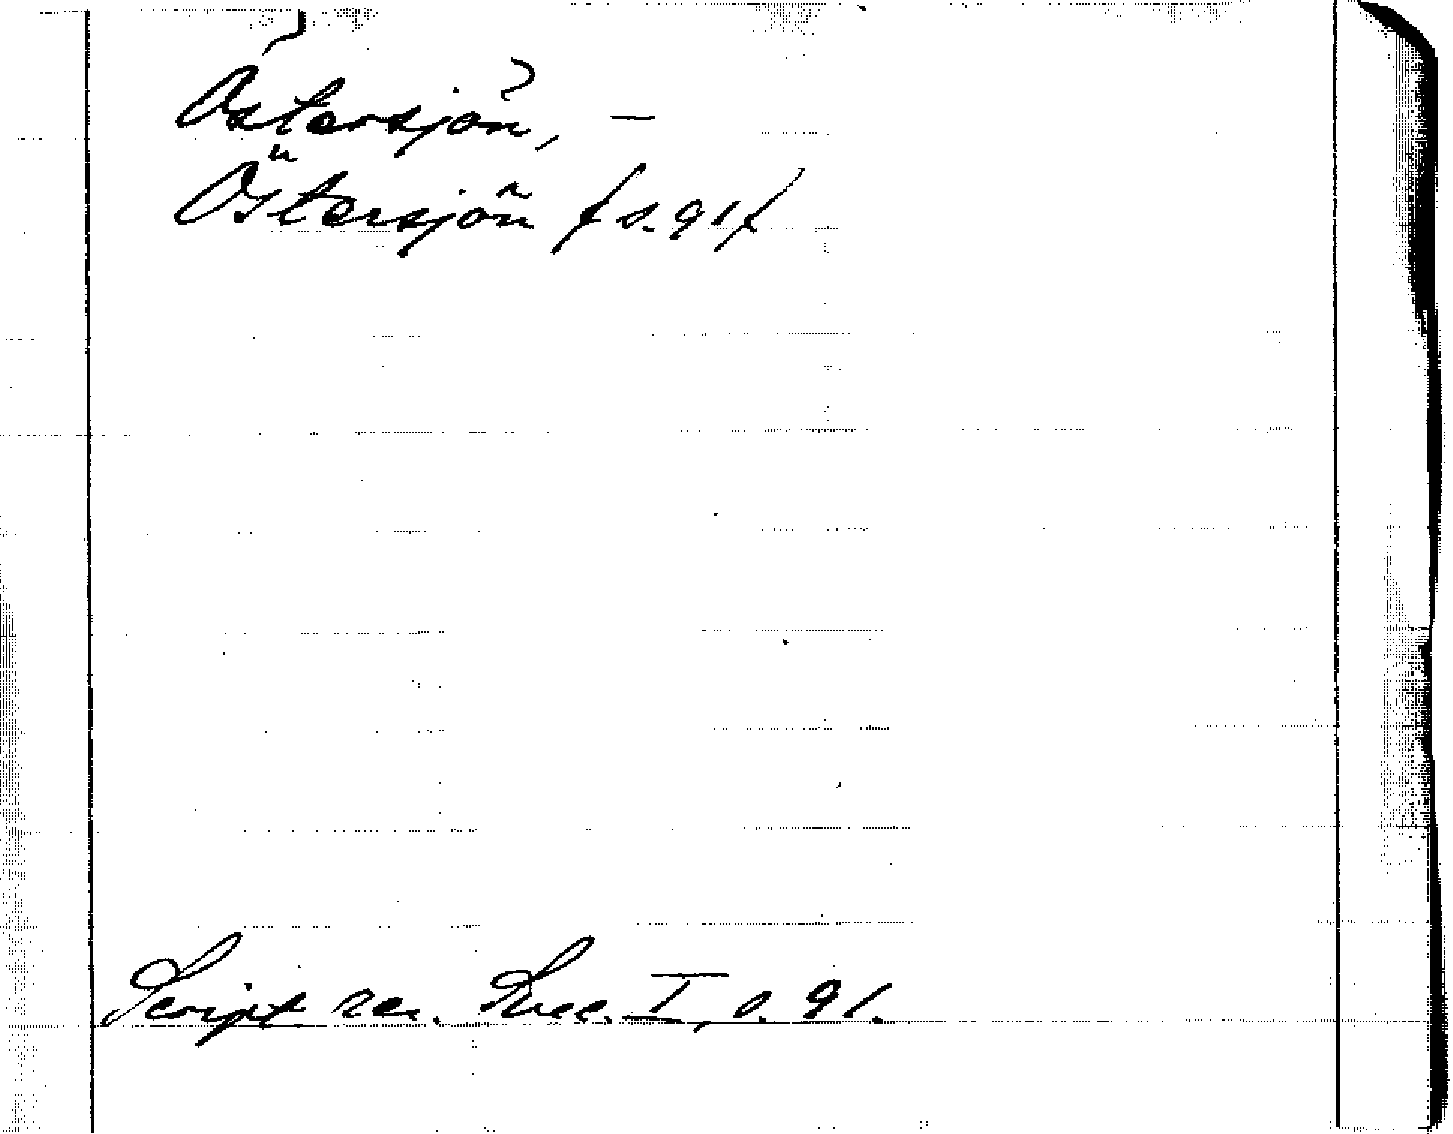 Östersjön, —
Östersjön / s. 91/
Script rer. Svec. I, s. 91.